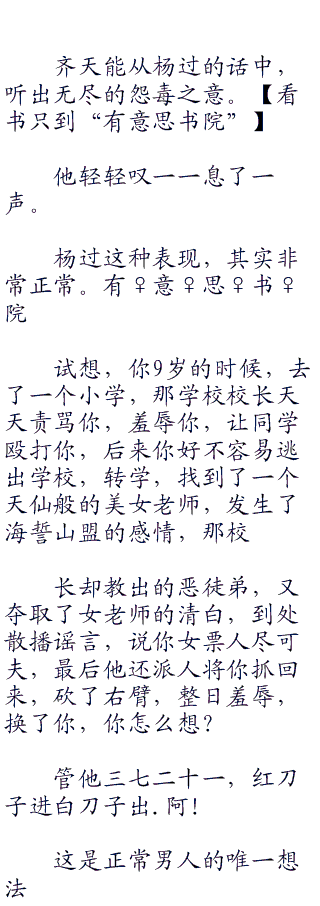 齐天能从杨过的话中，
听出无尽的怨毒之意。【看
书只到“有意思书院”】
他轻轻叹一一息了一
声。
杨过这种表现，其实非
常正常。有♀意♀思♀书♀
院
试想，你9岁的时候，去
了一个小学，那学校校长天
天责骂你，羞辱你，让同学
殴打你，后来你好不容易逃
出学校，转学，找到了一个
天仙般的美女老师，发生了
海誓山盟的感情，那校
长却教出的恶徒弟，又
夺取了女老师的清白，到处
散播谣言，说你女票人尽可
夫，最后他还派人将你抓回
来，砍了右臂，整日羞辱，
换了你，你怎么想？
管他三七二十一，红刀
子进白刀子出.阿！
这是正常男人的唯一想
法